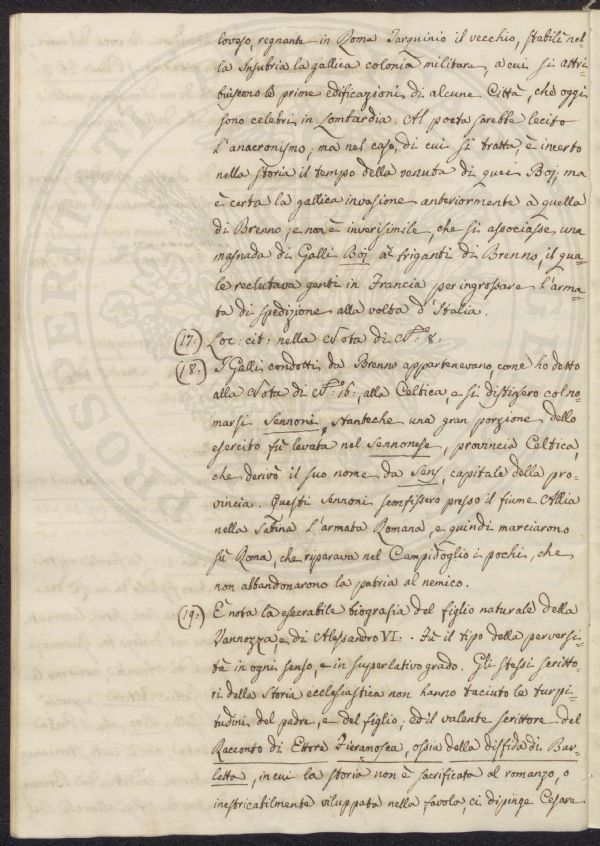 loveso, regnante in Roma Tarquinio il vecchio, stabilì nel-
la Insubria la gallica colonia militare, a cui si attri-
buiscono le prime edificazioni di alcune Città, che oggi
sono celebri in Lombardia. Al poeta sarebbe lecito
l'anacronismo; ma nel caso, di cui si tratta, è incerto
nella storia il tempo della venuta di quei Boj, ma
è certa la gallica invasione anteriormente a quella
di Brenno; e non è inverisimile, che si associasse una
masnada di Galli Boj ai briganti di Brenno, il qua-
le reclutava genti in Francia, per ingrossare l'arma-
ta di spedizione alla volta d'Italia.
17: Loc: cit: nella Nota di N.º 8.
18: I Galli condotti da Brenno appartenevano, come ho detto
alla Nota di N.º 16:, alla Celtica, e si distinsero col no-
marsi Sennoni, stanteche una gran porzione dello
esercito fù levata nel Sennonese, provincia Celtica,
che derivò il suo nome da Sens, capitale della pro-
vincia. Questi Sennoni sconfissero presso il fiume Allia
nella Sabina l'armata Romana, e quindi marciarono
sù Roma, che riparava nel Campidoglio i pochi, che
non abbandonarono la patria al nemico.
19: È nota la esecrabile biografia del figlio naturale della
Vannozza, e di Alessandro VI:. Fù il tipo della perversi-
tà in ogni senso, e in superlativo grado. Gli stessi scritto-
ri della storia ecclesiastica non hanno taciuto le turpi-
tudini del padre, e del figlio; ed il valente scrittore del
Racconto di Ettore Fieramosca, ossia della disfida di Bar-
letta, in cui la storia non è sacrificata al romanzo, o
inestricabilmente viluppata nella favola, ci dipinge Cesare
PROSPERITATI